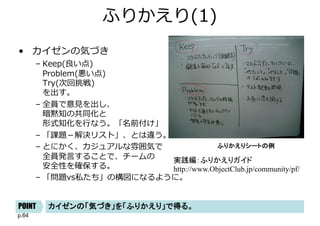 ふりかえり(1)
• カイゼンの気づき
– Keep(良い点)
Problem(悪い点)
Try(次回挑戦)
を出す。
– 全員で意見を出し、
暗黙知の共同化と
形式知化を行なう。「名前付け」
– 「課題-解決リスト」、とは違う。
– とにかく、カジュアルな雰囲気で
全員発言することで、チームの
安全性を確保する。
– 「問題vs私たち」の構図になるように。
Keep
Try
Problem
ふりかえりシートの例
実践編:ふりかえりガイド
http://www.ObjectClub.jp/community/pf/
POINT カイゼンの「気づき」を「ふりかえり」で得る。
p.64